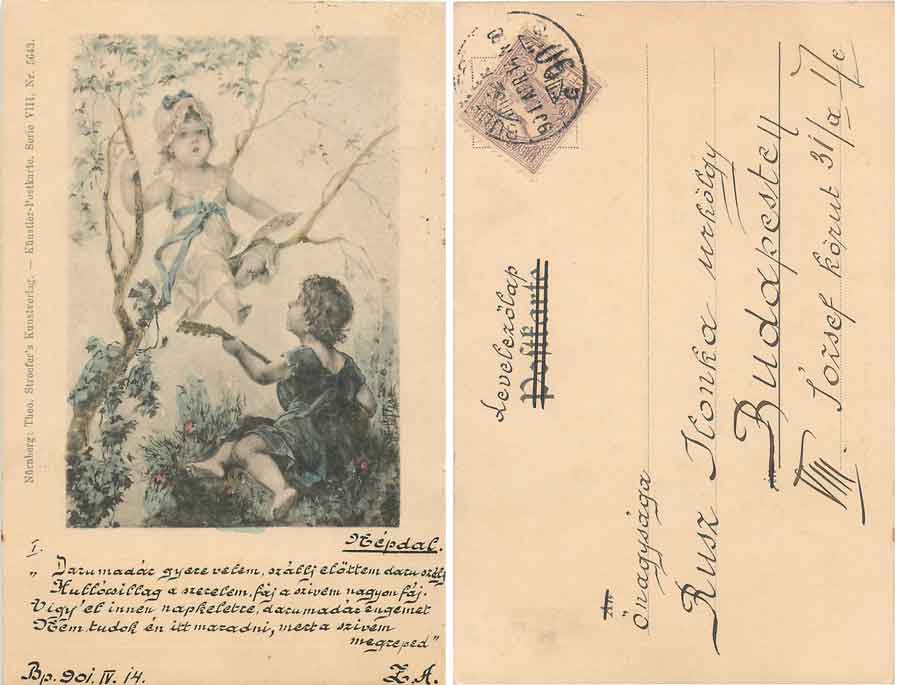 Nürnberg: Theo. Stroefer's Kunstverlag. — Künstler-Postkarte. Serie VIII. Nr. 5643.
I. Népdal.
„Darumadár gyere velem, szállj előttem daru szélj
Hullócsillag a szerelem, fáj a szívem nagyon fáj.
Vigy' el innen napkeletre, darumadár engemet
Nem tudok én itt maradni, mert a szívem
megreped"
Bp. 901. IV. 14. Z. A.
Levelezőlap
Postkarte
Őnagysága
Rusz Ilonka urhölgy
Budapesten
VIII József körut 31/a